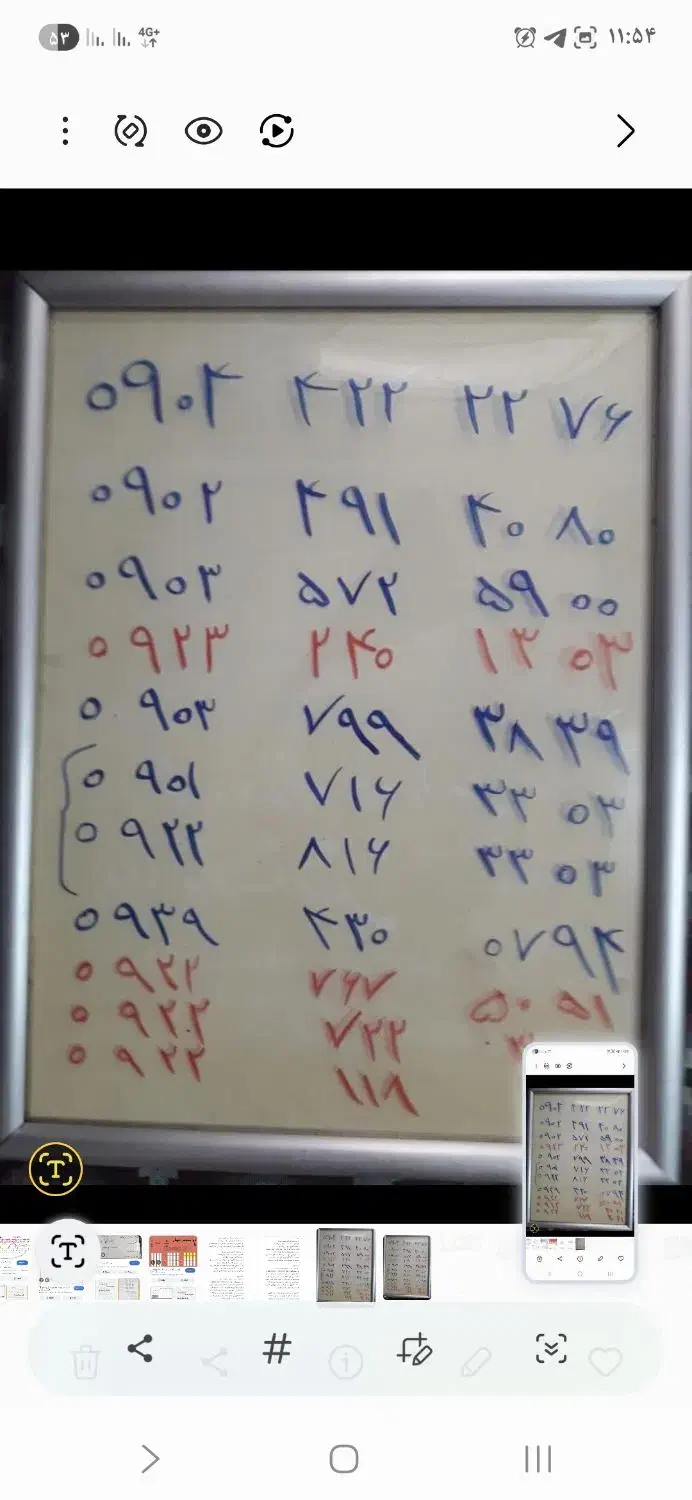 ۵۳ 4G+ ۱۱:۵۴
۰۹۰۴ ۴۲۲ ۲۲ ۷۶
۰۹۰۲ ۴۹۱ ۴۰ ۸۰
۰۹۰۳ ۵۷۲ ۵۹ ۰۰
۰۹۲۳ ۲۴۰ ۱۳ ۰۳
۰۹۰۳ ۷۹۹ ۳۸ ۳۹
۰۹۰۱ ۷۱۶ ۳۳ ۰۳
۰۹۲۲ ۸۱۶ ۳۳ ۰۳
۰۹۳۹ ۴۳۰ ۰۷۹۴
۰۹۲۲ ۷۶۷ ۵۰ ۵۱
۰۹۲۲ ۷۲۲
۰۹۲۲ ۱۱۸
T
T
#